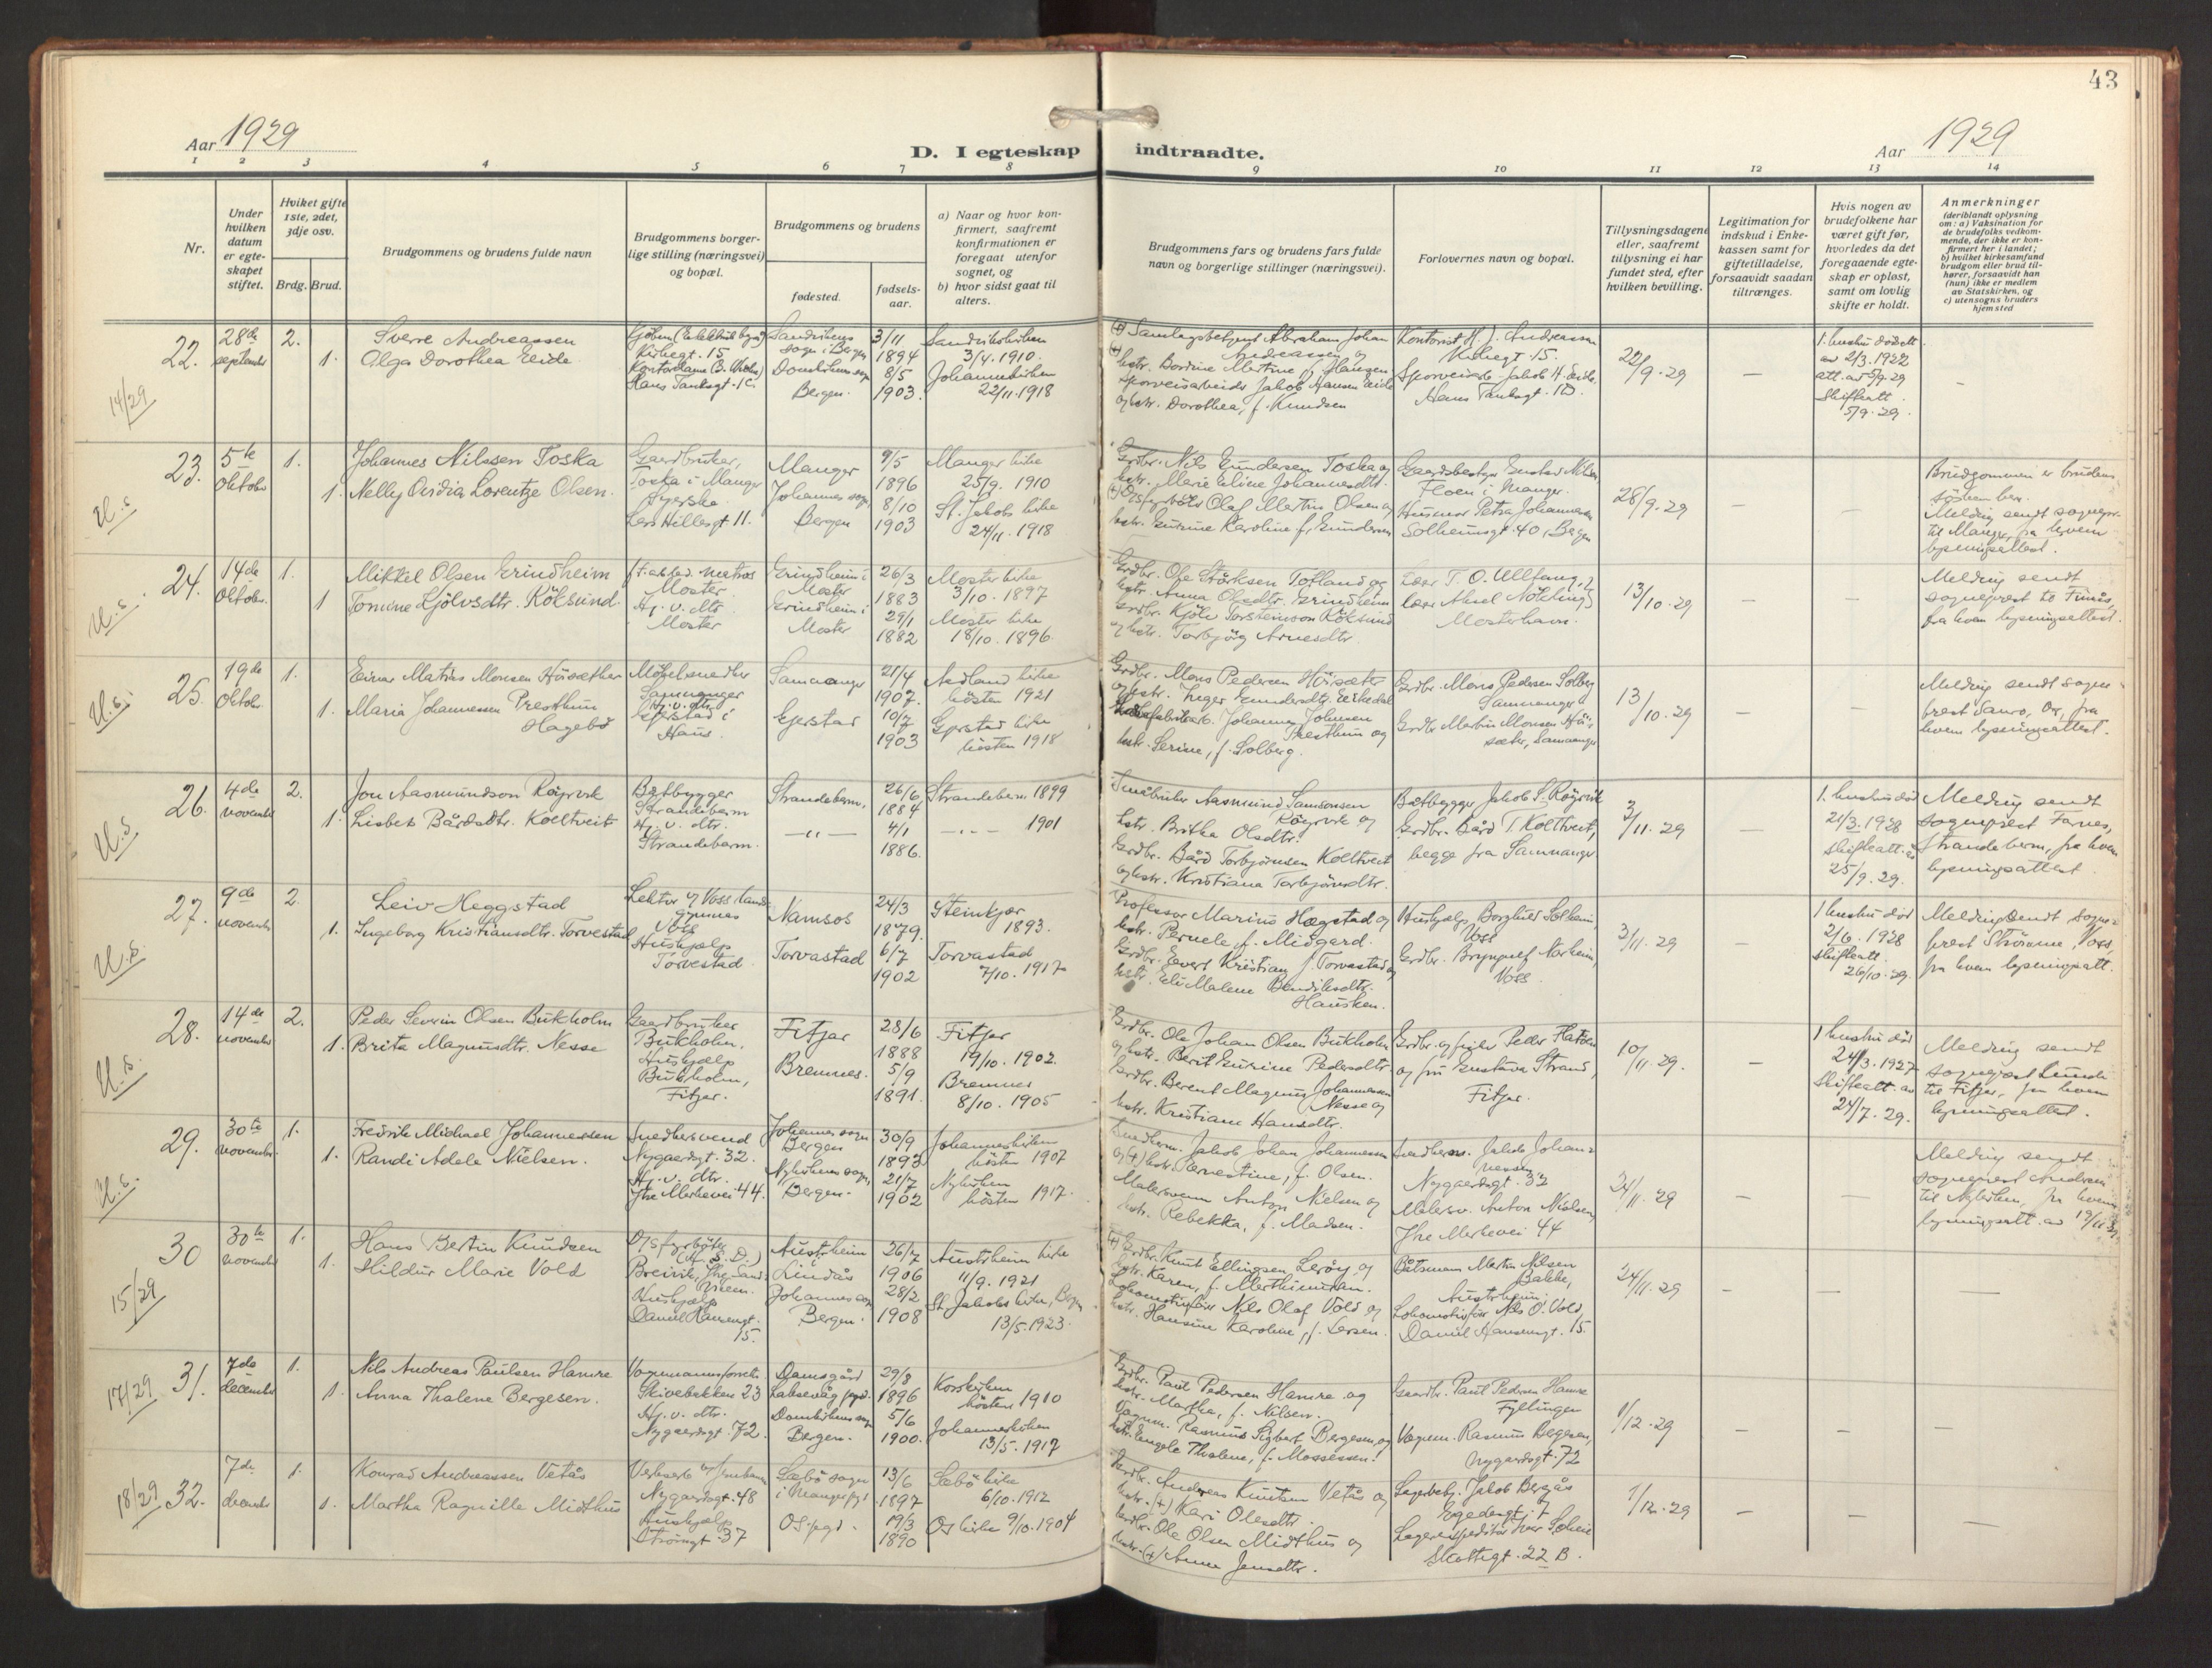 43
Aar 1929
D. I egteskap indtraadte.
Aar 1929
1 2 3 4 5 6 7 8 9 10 11 12 13 14
Nr.
Under hvilken datum er egte-skapet stiftet.
Hvilket gifte 1ste, 2det, 3dje osv.
Brdg. Brud.
Brudgommens og brudens fulde navn
Brudgommens borger-lige stilling (næringsvei) og bopæl.
Brudgommens og brudens
fødested.
fødsels-aar.
a) Naar og hvor kon-firmert, saafremt konfirmationen er foregaat utenfor sognet, og
b) hvor sidst gaat til alters.
Brudgommens fars og brudens fars fulde navn og borgerlige stillinger (næringsvei).
Forlovernes navn og bopæl.
Tillysningsdagene eller, saafremt tillysning ei har fundet sted, efter hvilken bevilling.
Legitimation for indskud i Enke-kassen samt for giftetilladelse, forsaavidt saadan tiltrænges.
Hvis nogen av brudefolkene har været gift før, hvorledes da det foregaaende egte-skap er opløst, samt om lovlig skifte er holdt.
Anmerkninger
(deriblandt oplysning om: a) Vaksination for de brudefolks vedkom-mende, der ikke er kon-firmert her i landet; b) hvilket kirkesamfund brudgom eller brud til-hører, forsaavidt han (hun) ikke er medlem av Statskirken, og c) utensogns bruders hjemsted
14/29
22. 28de september 2. 1.
Sverre Andreassen
Olga Dorothea Eide
Kirkegt. 15
Hans Tanksgt. 1C
Sandvikens sogn i Bergen
Domkirkens sogn Bergen.
3/11 1894
8/5 1903.
Sandvikskirken 3/4. 1910.
Johanneskirken 22/11. 1918
Abraham Johan Andreassen og
hstr. Bordine Martine f. Hansen
Sporveisarbeider Jakob Hansen Eide
og hstr. Dorothea, f. Knudsen
Kontorist H. J. Andreassen
Kirkegt. 15.
Sporveisarb. Jakob H. Eide
Hans Tanksgt. 1D.
22/9. 29
1. hustru død
av 2/3. 1922
att. av 5/9. 29
Skifteatt.
5/9. 29.
U.S.
23. 5te oktober 1. 1.
Johannes Nilssen Toska
Nelly Ovidia Lorentze Olsen.
Gaardbruker,
Toska i Manger
Syerske
Lars Hillesgt 11.
Manger
Johannes sogn, Bergen
9/5 1896
8/10 1903
Manger kirke 25/9. 1910
St. Jakobs kirke 24/11. 1918
Grdbr. Nils Gundersen Toska og
hstr. Marie Eline Johannesdtr.
Olaf Martin Olsen og
hstr. Gurine Karoline f. Gundersen
Gaardsbestyr Gustav Nilsen
Floen i Manger.
Husmor Petra Johannesen
Solheimsgt. 40, Bergen
28/9. 29
Brudgommen er brudens
søskenbarn.
Melding sendt sognepr.
til Manger, fra hvem
lysningsattest.
U.S.
24. 14de oktober 1. 1
Mikkel Olsen Grindheim
Tomine Kjölvsdtr. Röksund.
matros
Moster
Hj. v. dtr.
Moster
Grindheim i Moster
Grindheim i Moster
26/3 1883
29/1 1882
Moster kirke 3/10. 1897
Moster kirke 18/10. 1896.
Grdbr. Ole Størksen Tofland og
hstr. Anna Olsdtr. Grindheim
Grdbr. Kjöle Torsteinson Röksund
og hstr. Torbjörg Arnesdtr.
Lærer T. O. Ulfang,
lærer Aksel Nökling
Mosterhavn.
13/10. 29
Melding sendt
sogneprest to Finås,
fra hvem lysningsattest.
U.S.
25. 19de oktober 1. 1.
Einar Matias Monsen Höisæther
Maria Johannessen Presthun
Hagebö
Möbelsnedker
Samnanger
Hj. v. dtr.
Gjerstad i
Haus.
Samnanger
Gjerstad
21/4 1907.
10/7 1903
Aadland kirke hösten 1921
Gjerstad kirke hösten 1918
Grdbr. Mons Pedersen Höisæter
og hstr. Inger Gundersdtr. Eikedal
Johannes Johnsen
Presthun og
hstr. Serine, f. Solberg.
Grdbr. Mons Pedersen Solberg
Samnanger
Grdbr. Martin Monsen Höi-
sæter, Samnanger
13/10. 29
Melding sendt sogne-
prest Sauro, Os, fra
hvem lysningsattest.
U.S
26. 4de november 2. 1.
Jon Aasmundson Röyrvik
Lisbet Bårdsdtr. Koltveit
Båtbygger
Strandebarm
Hj. v. dtr.
Strandebarm.
Strandebarm,
— " —
26/6 1884
4/1 1886.
Strandebarm 1899
— " — 1901
Småbruker Aasmund Samsonsen
Röyrvik og
hstr. Britha Olsdtr.
Grdbr. Bård Torbjørnsen Koltveit
og hstr. Kristiana Torbjørnsdtr.
Båtbygger Jakob S. Röyrvik
Grdbr. Bård T. Koltveit,
begge fra Samnanger
3/11. 29
1. hustru død
21/3. 1928
skifteatt. av
25/9. 29.
Melding sendt
sogneprest Farnes,
Strandebarm, fra hvem
lysningsattest.
U.S.
27. 9de november 2. 1.
Leiv Heggstad
Ingeborg Kristiansdtr. Torvestad
Lektor v/ Voss lands-
gymnas
Voss
Hushjælp
Torvestad.
Namsos
Torvastad
24/3 1879.
6/7 1902
Steinkjær 1893.
Torvastad 7/10. 1917
Professor Marius Hægstad og
hstr. Pernele f. Midgard.
Grdbr. Evert Kristian J. Torvastad og
hstr. Eli Malene Bendiksdtr.
Hausken.
Hushjælp Borghild Solheim,
Voss
Grdbr. Brynjulf Norheim,
Voss.
3/11. 29
1 hustru død
2/6. 1928
skifteatt.
26/10. 29.
Melding sendt sogne-
prest Thorsine, Voss,
fra hvem lysningsatt.
U.S.
28. 14de november 2. 1.
Peder Severin Olsen Bukholm
Brita Magnusdtr. Nesse
Gaardbruker
Bukholm,
Hushjælp
Bukholm,
Fitjar.
Fitjar
Bremnes.
28/6 1888
5/9 1891.
Fitjar 19/10. 1902.
Bremnes 8/10. 1905
Grdbr. Ole Johan Olsen Bukholm
og hstr. Berit Gurine Pedersdtr.
Grdbr. Berent Magnus Johannessen
Nesse og
hstr. Kristiane Hansdtr.
Grdbr. og fisker Peder
og fru Gustava Strand,
Fitjar.
10/11. 29.
1 hustru død
24/3. 1927
Skifteatt. av
24/7. 29.
Melding sendt
sogneprest Lunde
til Fitjar, fra hvem
lysningsattest.
U.S.
29. 30te november 1. 1.
Fredrik Michael Johannessen
Randi Adele Nielsen.
Snedkersvend
Nygaardsgt. 32.
Hj. v. dtr.
Ytre Markevei 44.
Johannes sogn Bergen
Nykirkens sogn, Bergen.
30/9 1893
21/7 1902
Johanneskirken hösten 1907
Nykirken hösten 1917.
Snedkerm. Jakob Johan Johannessen
og (+) hstr. Ernestine, f. Olsen.
Malersvenn Anton Nielsen og
hstr. Rebekka, f. Madsen.
Snedkerm. Jakob Johan-
nessen
Nygaardsgt. 32
Malersv. Anton Nielsen,
Ytre Markevei 44
24/11. 29
Melding sendt
sogneprest Andersen
til Nykirken, fra hvem
lysningsatt. av 19/11 29
15/29
30 30te november 1. 1.
Hans Bertin Knudsen
Hildur Marie Vold
Hushjælp
Daniel Hansensgt.
15.
Austrheim
Lindås
Johannes sogn
Bergen.
26/7 1906
28/2 1908
Austrheim kirke 11/9. 1921
St. Jakobs kirke, Bergen 13/5. 1923.
(+) Grdbr. Knut Ellingsen Leröy og
hstr. Karen, f. Marthinussen.
Lokomotivförer Nils Olaf Vold og
hstr. Hansine Karoline, f. Larsen.
Båtsmann Martin Nilsen
Bakke,
Austrheim.
Lokomotivför. Nils O. Vold,
Daniel Hansensgt. 15.
24/11. 29
17/29
31. 7de december 1. 1.
Nils Andreas Paulsen Hamre
Anna Thalene Bergesen.
Skivebakken 23
Hj. v. dtr.
Nygaardsgt. 72.
Damsgård
Laksevåg pgd.
Domkirkens sogn
Bergen.
29/8 1896
5/6 1900.
Korskirken hösten 1910
Johanneskirken 13/5. 1917
Grdbr. Paul Pedersen Hamre og
hstr. Martha, f. Nilsen.
Vognm. Rasmus Sigbert Bergesen og
hstr. Engele Thalene, f. Mossesen.
Gaardbr. Paul Pedersen Hamre
Fyllingen
Vognm. Rasmus Bergesen,
Nygaardsgt. 72
1/12. 29
18/29
32. 7de december 1. 1.
Konrad Andreassen Vetås
Martha Ragnille Midthus
Nygaardsgt. 48
Hushjælp
Strömgt. 37
Sæbö sogn
i Manger pgd
Os pgd.
13/6 1897
19/3 1890
Sæbö kirke 6/10. 1912
Os kirke 9/10. 1904
Grdbr. Andreas Knutsen Vetås og
hstr. (+) Kari Olesdtr.
Grdbr. Ole Olsen Midthus og
hstr. (+) Anna Jensdtr.
Lagerbetj. Jakob Bergås
Egedesgt. 7
Lagerekspeditör Ivar Soleim
Skottegt. 22 B.
1/12. 29